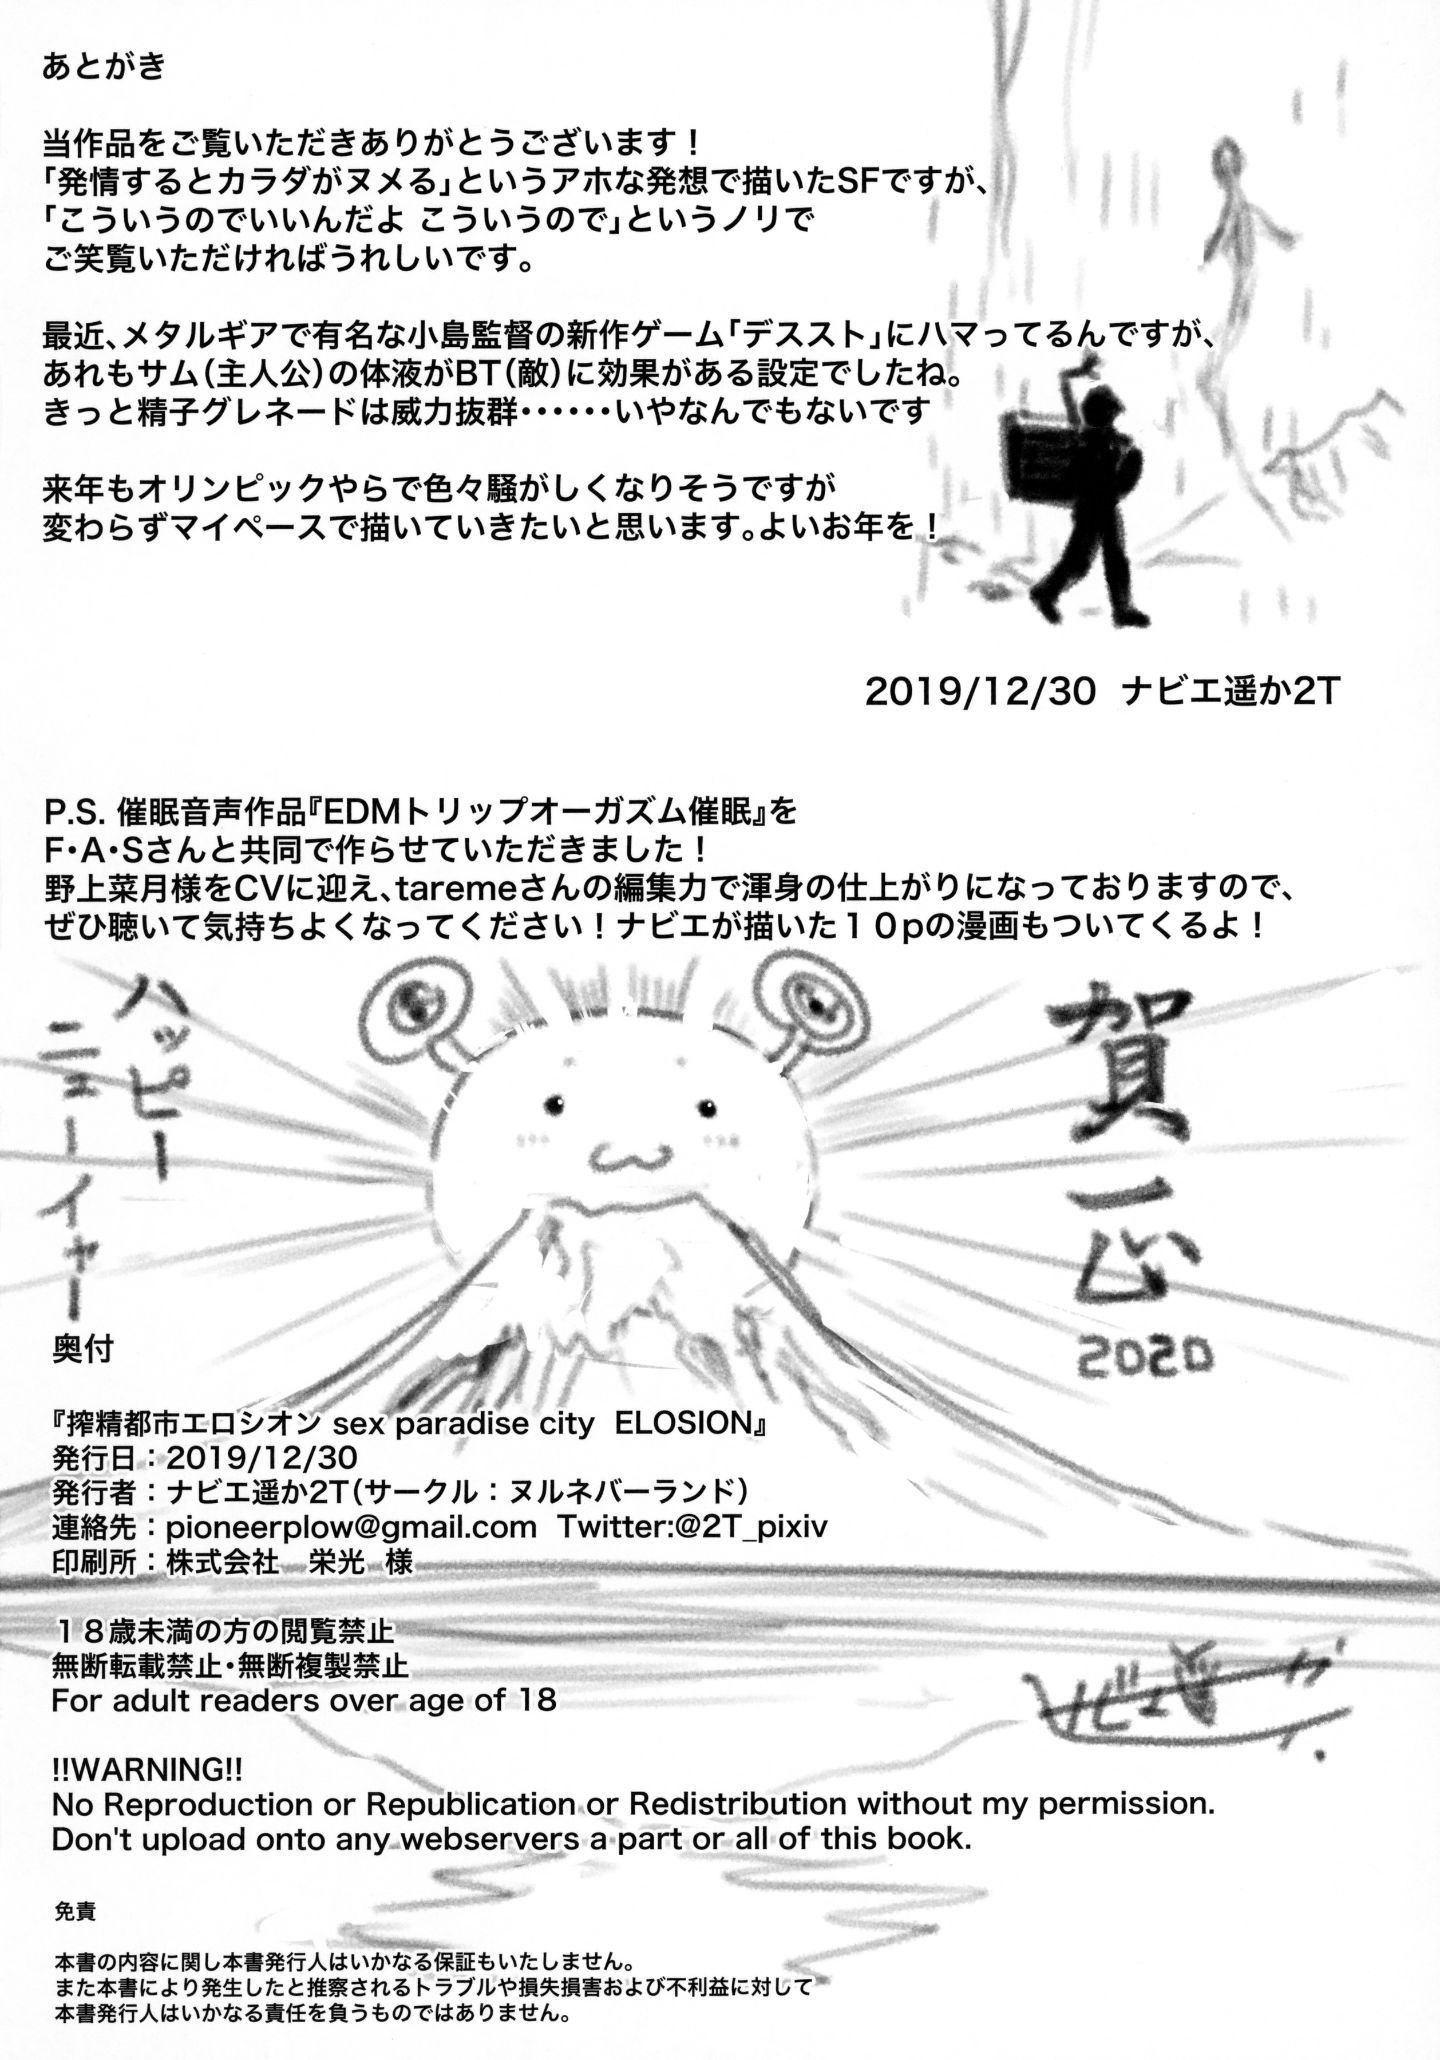 あとがき
当作品をご覧いただきありがとうございます！
「発情するとカラダがヌメる」というアホな発想で描いたSFですが、
「こういうのでいいんだよ こういうので」というノリで
ご笑覧いただければうれしいです。
最近、メタルギアで有名な小島監督の新作ゲーム「デススト」にハマってるんですが、
あれもサム（主人公）の体液がBT（敵）に効果がある設定でしたね。
きっと精子グレネードは威力抜群・・・・・・いやなんでもないです
来年もオリンピックやらで色々騒がしくなりそうですが
変わらずマイペースで描いていきたいと思います。よいお年を！
2019/12/30 ナビエ遥か2T
P.S. 催眠音声作品『EDMトリップオーガズム催眠』を
F・A・Sさんと共同で作らせていただきました！
野上菜月様をCVに迎え、taremeさんの編集力で渾身の仕上がりになっておりますので、
ぜひ聴いて気持ちよくなってください！ナビエが描いた１０pの漫画もついてくるよ！
賀正
2020
ハッピー
ニューイヤー
奥付
『搾精都市エロシオン sex paradise city ELOSION』
発行日：2019/12/30
発行者：ナビエ遥か2T（サークル：ヌルネバーランド）
連絡先：pioneerplow@gmail.com Twitter:@2T_pixiv
印刷所：株式会社　栄光 様
１８歳未満の方の閲覧禁止
無断転載禁止・無断複製禁止
For adult readers over age of 18
!!WARNING!!
No Reproduction or Republication or Redistribution without my permission.
Don't upload onto any webservers a part or all of this book.
免責
本書の内容に関し本書発行人はいかなる保証もいたしません。
また本書により発生したと推察されるトラブルや損失損害および不利益に対して
本書発行人はいかなる責任を負うものではありません。